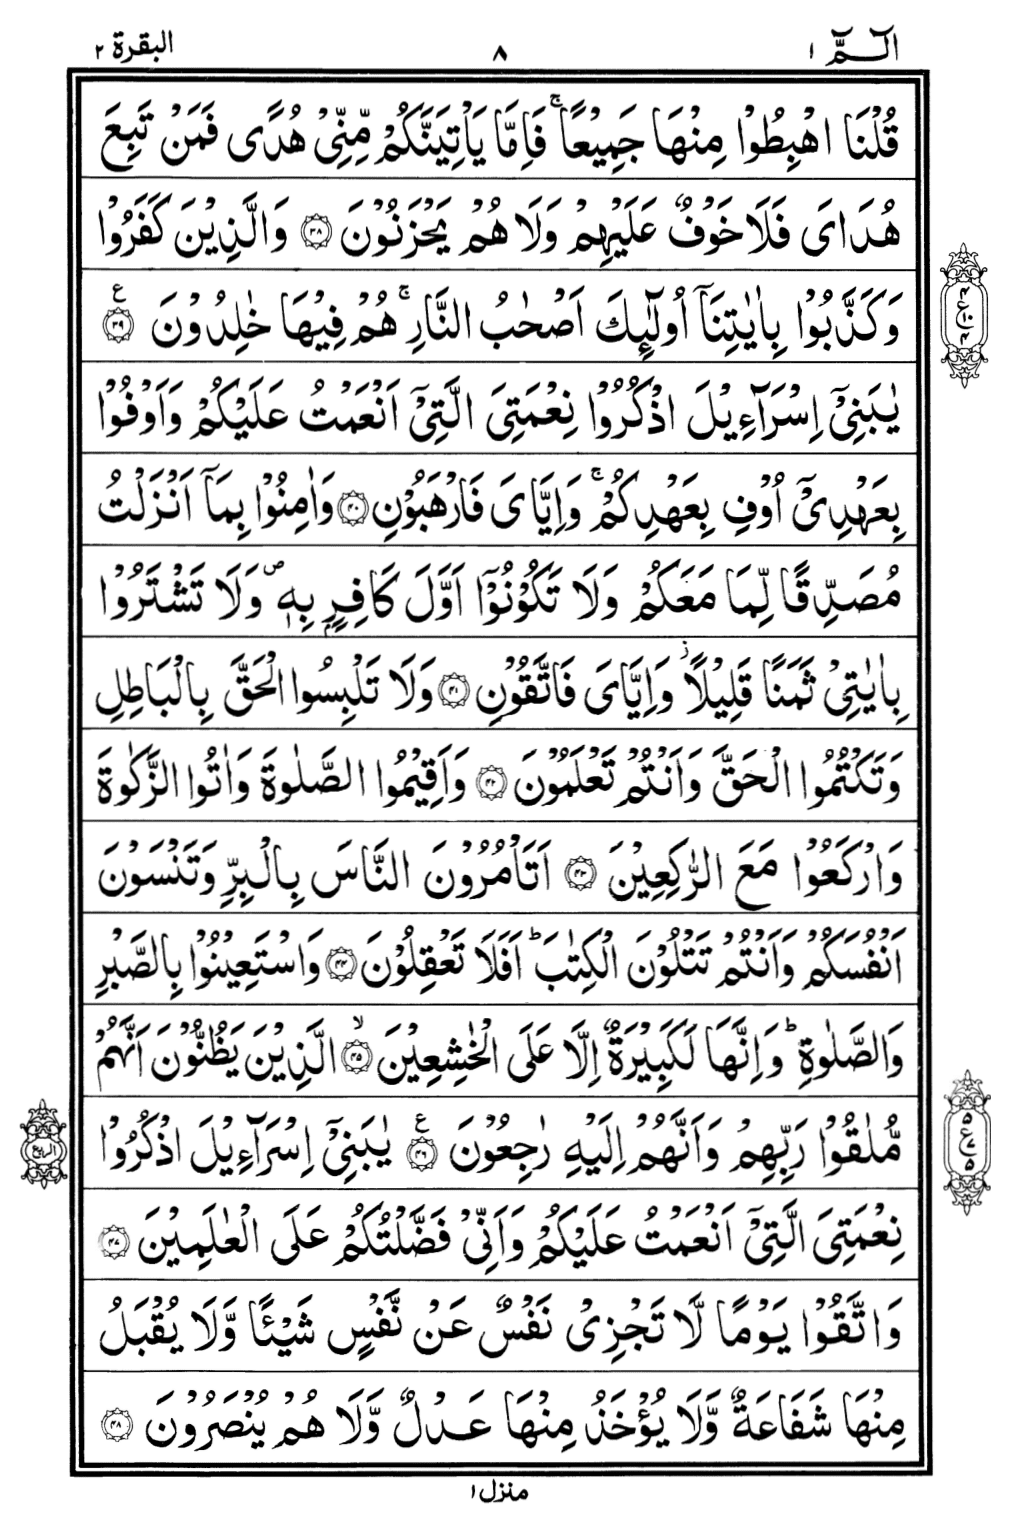 الٓمّٓ ١
٨
البقرة ٢
قُلْنَا اهْبِطُوْا مِنْهَا جَمِيْعًا ۚ فَاِمَّا يَاْتِيَنَّكُمْ مِّنِّيْ هُدًى فَمَنْ تَبِعَ
هُدَايَ فَلَا خَوْفٌ عَلَيْهِمْ وَلَا هُمْ يَحْزَنُوْنَ ۝٣٨ وَالَّذِيْنَ كَفَرُوْا
وَكَذَّبُوْا بِاٰيٰتِنَآ اُولٰٓئِكَ اَصْحٰبُ النَّارِ ۚ هُمْ فِيْهَا خٰلِدُوْنَ ۝٣٩ ع
يٰبَنِيْٓ اِسْرَآءِيْلَ اذْكُرُوْا نِعْمَتِيَ الَّتِيْٓ اَنْعَمْتُ عَلَيْكُمْ وَاَوْفُوْا
بِعَهْدِيْٓ اُوْفِ بِعَهْدِكُمْ ۚ وَاِيَّايَ فَارْهَبُوْنِ ۝٤٠ وَاٰمِنُوْا بِمَآ اَنْزَلْتُ
مُصَدِّقًا لِّمَا مَعَكُمْ وَلَا تَكُوْنُوْٓا اَوَّلَ كَافِرٍۭ بِهٖ ۪ وَلَا تَشْتَرُوْا
بِاٰيٰتِيْ ثَمَنًا قَلِيْلًا ؗ وَاِيَّايَ فَاتَّقُوْنِ ۝٤١ وَلَا تَلْبِسُوا الْحَقَّ بِالْبَاطِلِ
وَتَكْتُمُوا الْحَقَّ وَاَنْتُمْ تَعْلَمُوْنَ ۝٤٢ وَاَقِيْمُوا الصَّلٰوةَ وَاٰتُوا الزَّكٰوةَ
وَارْكَعُوْا مَعَ الرّٰكِعِيْنَ ۝٤٣ اَتَاْمُرُوْنَ النَّاسَ بِالْبِرِّ وَتَنْسَوْنَ
اَنْفُسَكُمْ وَاَنْتُمْ تَتْلُوْنَ الْكِتٰبَ ؕ اَفَلَا تَعْقِلُوْنَ ۝٤٤ وَاسْتَعِيْنُوْا بِالصَّبْرِ
وَالصَّلٰوةِ ؕ وَاِنَّهَا لَكَبِيْرَةٌ اِلَّا عَلَى الْخٰشِعِيْنَ ۝٤٥ۙ الَّذِيْنَ يَظُنُّوْنَ اَنَّهُمْ
مُّلٰقُوْا رَبِّهِمْ وَاَنَّهُمْ اِلَيْهِ رٰجِعُوْنَ ۝٤٦ ع يٰبَنِيْٓ اِسْرَآءِيْلَ اذْكُرُوْا
نِعْمَتِيَ الَّتِيْٓ اَنْعَمْتُ عَلَيْكُمْ وَاَنِّيْ فَضَّلْتُكُمْ عَلَى الْعٰلَمِيْنَ ۝٤٧
وَاتَّقُوْا يَوْمًا لَّا تَجْزِيْ نَفْسٌ عَنْ نَّفْسٍ شَيْـًٔا وَّلَا يُقْبَلُ
مِنْهَا شَفَاعَةٌ وَّلَا يُؤْخَذُ مِنْهَا عَدْلٌ وَّلَا هُمْ يُنْصَرُوْنَ ۝٤٨
٤
ع ١٠
٤
٥
ع ٧
٥
الربع
منزل ١